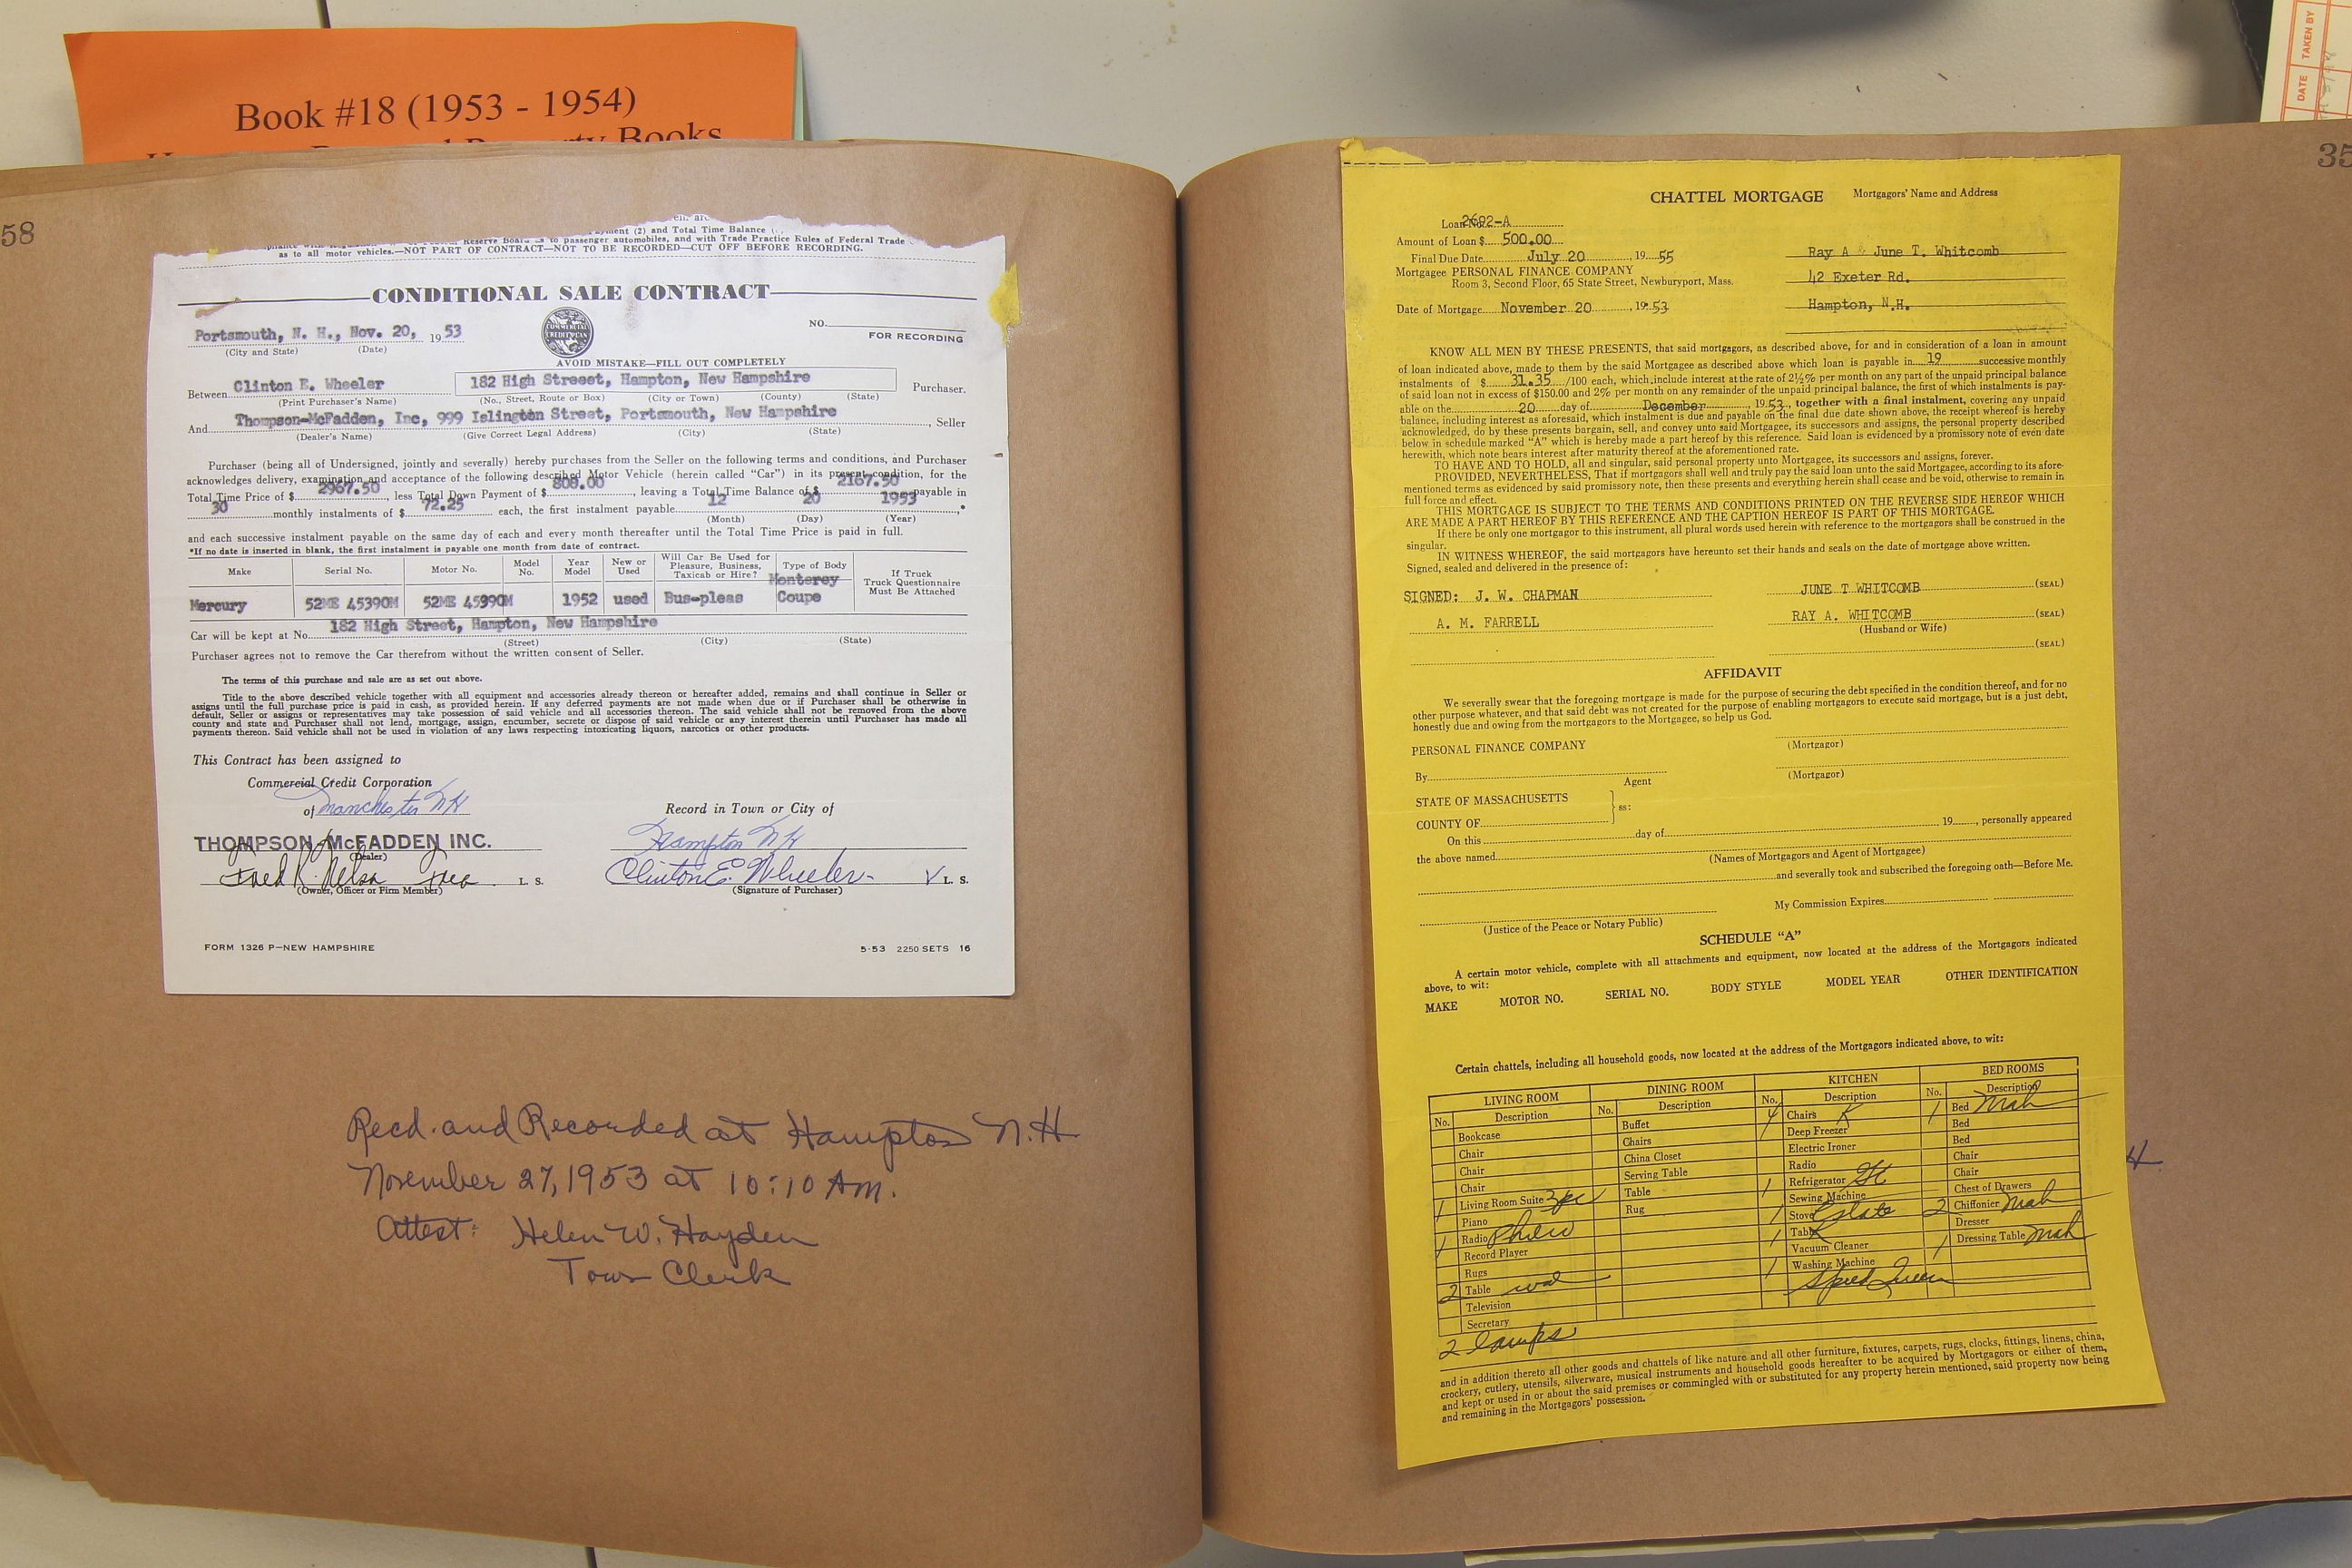 Book #18 (1953 - 1954)
Books
58
35
DATE
TAKEN BY
ment (2) and Total Time Balance
Reserve Board as to passenger automobiles, and with Trade Practice Rules of Federal Trade
as to all motor vehicles.—NOT PART OF CONTRACT—NOT TO BE RECORDED—CUT OFF BEFORE RECORDING.
CONDITIONAL SALE CONTRACT
Portsmouth, N. H., Nov. 20, 1953
(City and State) (Date)
COMMERCIAL CREDIT PLAN
NO.
FOR RECORDING
AVOID MISTAKE—FILL OUT COMPLETELY
Between Clinton E. Wheeler 182 High Streeet, Hampton, New Hampshire Purchaser.
(Print Purchaser's Name) (No., Street, Route or Box) (City or Town) (County) (State)
And Thompson-McFadden, Inc, 999 Islington Street, Portsmouth, New Hampshire, Seller
(Dealer's Name) (Give Correct Legal Address) (City) (State)
Purchaser (being all of Undersigned, jointly and severally) hereby purchases from the Seller on the following terms and conditions, and Purchaser
acknowledges delivery, examination and acceptance of the following described Motor Vehicle (herein called "Car") in its present condition, for the
Total Time Price of $ 2967.50, less Total Down Payment of $ 808.00, leaving a Total Time Balance of $ 2167.50 payable in
30 monthly instalments of $ 72.25 each, the first instalment payable 12 20 1953,*
(Month) (Day) (Year)
and each successive instalment payable on the same day of each and every month thereafter until the Total Time Price is paid in full.
*If no date is inserted in blank, the first instalment is payable one month from date of contract.
Make Serial No. Motor No. Model No. Year Model New or Used Will Car Be Used for Pleasure, Business, Taxicab or Hire? Type of Body If Truck Truck Questionnaire Must Be Attached
Mercury 52ME 45390M 52ME 45390M 1952 used Bus-pleas Monterey Coupe
Car will be kept at No. 182 High Street, Hampton, New Hampshire
(Street) (City) (State)
Purchaser agrees not to remove the Car therefrom without the written consent of Seller.
The terms of this purchase and sale are as set out above.
Title to the above described vehicle together with all equipment and accessories already thereon or hereafter added, remains and shall continue in Seller or
assigns until the full purchase price is paid in cash, as provided herein. If any deferred payments are not made when due or if Purchaser shall be otherwise in
default, Seller or assigns or representatives may take possession of said vehicle and all accessories thereon. The said vehicle shall not be removed from the above
county and state and Purchaser shall not lend, mortgage, assign, encumber, secrete or dispose of said vehicle or any interest therein until Purchaser has made all
payments thereon. Said vehicle shall not be used in violation of any laws respecting intoxicating liquors, narcotics or other products.
This Contract has been assigned to
Commercial Credit Corporation
of Manchester NH
Record in Town or City of
THOMPSON-McFADDEN INC.
Hampton NH
(Dealer)
Fred R. Nelson Treas. L. S.
Clinton E. Wheeler ✓ L. S.
(Owner, Officer or Firm Member)
(Signature of Purchaser)
FORM 1326 P—NEW HAMPSHIRE
5-53 2250 SETS 16
Recd. and Recorded at Hampton N.H
November 27, 1953 at 10:10 AM.
Attest: Helen W. Hayden
Town Clerk
CHATTEL MORTGAGE
Mortgagors' Name and Address
Loan No. 2682-A
Amount of Loan $ 500.00
Final Due Date July 20, 1955
Mortgagee PERSONAL FINANCE COMPANY
Room 3, Second Floor, 65 State Street, Newburyport, Mass.
Date of Mortgage November 20, 1953
Ray A & June T. Whitcomb
42 Exeter Rd.
Hampton, N.H.
KNOW ALL MEN BY THESE PRESENTS, that said mortgagors, as described above, for and in consideration of a loan in amount
of loan indicated above, made to them by the said Mortgagee as described above which loan is payable in 19 successive monthly
instalments of $ 31.35 /100 each, which include interest at the rate of 2½% per month on any part of the unpaid principal balance
of said loan not in excess of $150.00 and 2% per month on any remainder of the unpaid principal balance, the first of which instalments is pay-
able on the 20 day of December, 1953, together with a final instalment, covering any unpaid
balance, including interest as aforesaid, which instalment is due and payable on the final due date shown above, the receipt whereof is hereby
acknowledged, do by these presents bargain, sell, and convey unto said Mortgagee, its successors and assigns, the personal property described
below in schedule marked "A" which is hereby made a part hereof by this reference. Said loan is evidenced by a promissory note of even date
herewith, which note bears interest after maturity thereof at the aforementioned rate.
TO HAVE AND TO HOLD, all and singular, said personal property unto Mortgagee, its successors and assigns, forever.
PROVIDED, NEVERTHELESS, That if mortgagors shall well and truly pay the said loan unto the said Mortgagee, according to its afore-
mentioned terms as evidenced by said promissory note, then these presents and everything herein shall cease and be void, otherwise to remain in
full force and effect.
THIS MORTGAGE IS SUBJECT TO THE TERMS AND CONDITIONS PRINTED ON THE REVERSE SIDE HEREOF WHICH
ARE MADE A PART HEREOF BY THIS REFERENCE AND THE CAPTION HEREOF IS PART OF THIS MORTGAGE.
If there be only one mortgagor to this instrument, all plural words used herein with reference to the mortgagors shall be construed in the
singular.
IN WITNESS WHEREOF, the said mortgagors have hereunto set their hands and seals on the date of mortgage above written.
Signed, sealed and delivered in the presence of:
SIGNED: J. W. CHAPMAN
JUNE T WHITCOMB (SEAL)
A. M. FARRELL
RAY A. WHITCOMB (SEAL)
(Husband or Wife)
(SEAL)
AFFIDAVIT
We severally swear that the foregoing mortgage is made for the purpose of securing the debt specified in the condition thereof, and for no
other purpose whatever, and that said debt was not created for the purpose of enabling mortgagors to execute said mortgage, but is a just debt,
honestly due and owing from the mortgagors to the Mortgagee, so help us God.
PERSONAL FINANCE COMPANY
(Mortgagor)
By
Agent
(Mortgagor)
STATE OF MASSACHUSETTS
COUNTY OF
ss:
On this day of 19, personally appeared
the above named
(Names of Mortgagors and Agent of Mortgagee)
and severally took and subscribed the foregoing oath—Before Me.
My Commission Expires
(Justice of the Peace or Notary Public)
SCHEDULE "A"
A certain motor vehicle, complete with all attachments and equipment, now located at the address of the Mortgagors indicated
above, to wit:
MAKE MOTOR NO. SERIAL NO. BODY STYLE MODEL YEAR OTHER IDENTIFICATION
Certain chattels, including all household goods, now located at the address of the Mortgagors indicated above, to wit:
LIVING ROOM
No. Description
Bookcase
Chair
Chair
Chair
1 Living Room Suite 3pc
Piano
1 Radio Philco
Record Player
Rugs
2 Table wal
Television
Secretary
2 lamps
DINING ROOM
No. Description
Buffet
Chairs
China Closet
Serving Table
Table
Rug
KITCHEN
No. Description
4 Chairs K
Deep Freezer
Electric Ironer
Radio
1 Refrigerator
Sewing Machine
1 Stove
1 Table
Vacuum Cleaner
1 Washing Machine
Speed Queen
BED ROOMS
No. Description
1 Bed Mah
Bed
Bed
Chair
Chair
Chest of Drawers
2 Chiffonier Mah
Dresser
1 Dressing Table Mah
and in addition thereto all other goods and chattels of like nature and all other furniture, fixtures, carpets, rugs, clocks, fittings, linens, china,
crockery, cutlery, utensils, silverware, musical instruments and household goods hereafter to be acquired by Mortgagors or either of them,
and kept or used in or about the said premises or commingled with or substituted for any property herein mentioned, said property now being
and remaining in the Mortgagors' possession.
H.